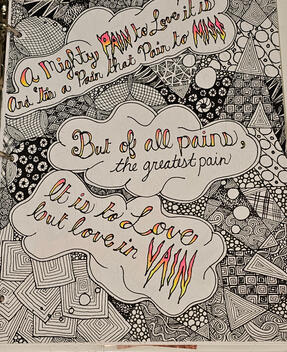 A Mighty PAIN to Love it is
And 'tis a Pain that Pain to MISS
But of all pains,
the greatest pain
It is to Love,
but love in VAIN